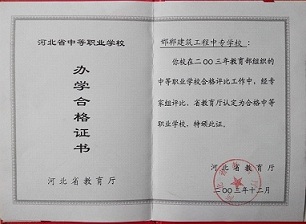 河北省中等职业学校
办学合格证书
河北省教育厅
邯郸建筑工程中专学校：
你校在二〇〇三年教育部组织的
中等职业学校合格评比工作中，经专
家组评比、省教育厅认定为合格中等
职业学校，特颁此证。
河北省教育厅
二〇〇三年十二月